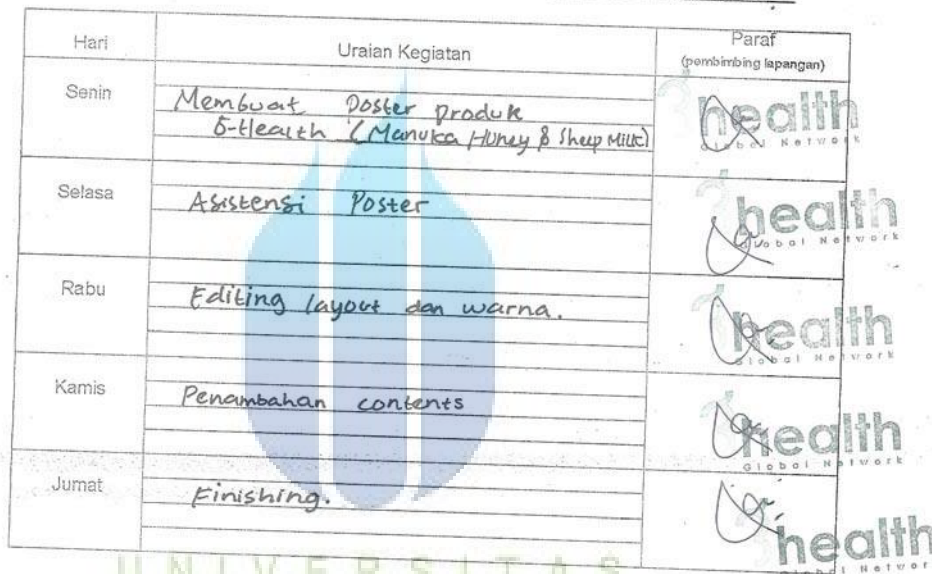 Hari
Uraian Kegiatan
Paraf
(pembimbing lapangan)
Senin
Membuat Poster produk
5-Health (Manuka Huney & Sheep Milk)
health
Global Network
Selasa
Asistensi Poster
health
Global Network
Rabu
Editing layout dan warna.
health
Global Network
Kamis
Penambahan contents
health
Global Network
Jumat
Finishing.
health
Global Network
UNIVERSITAS